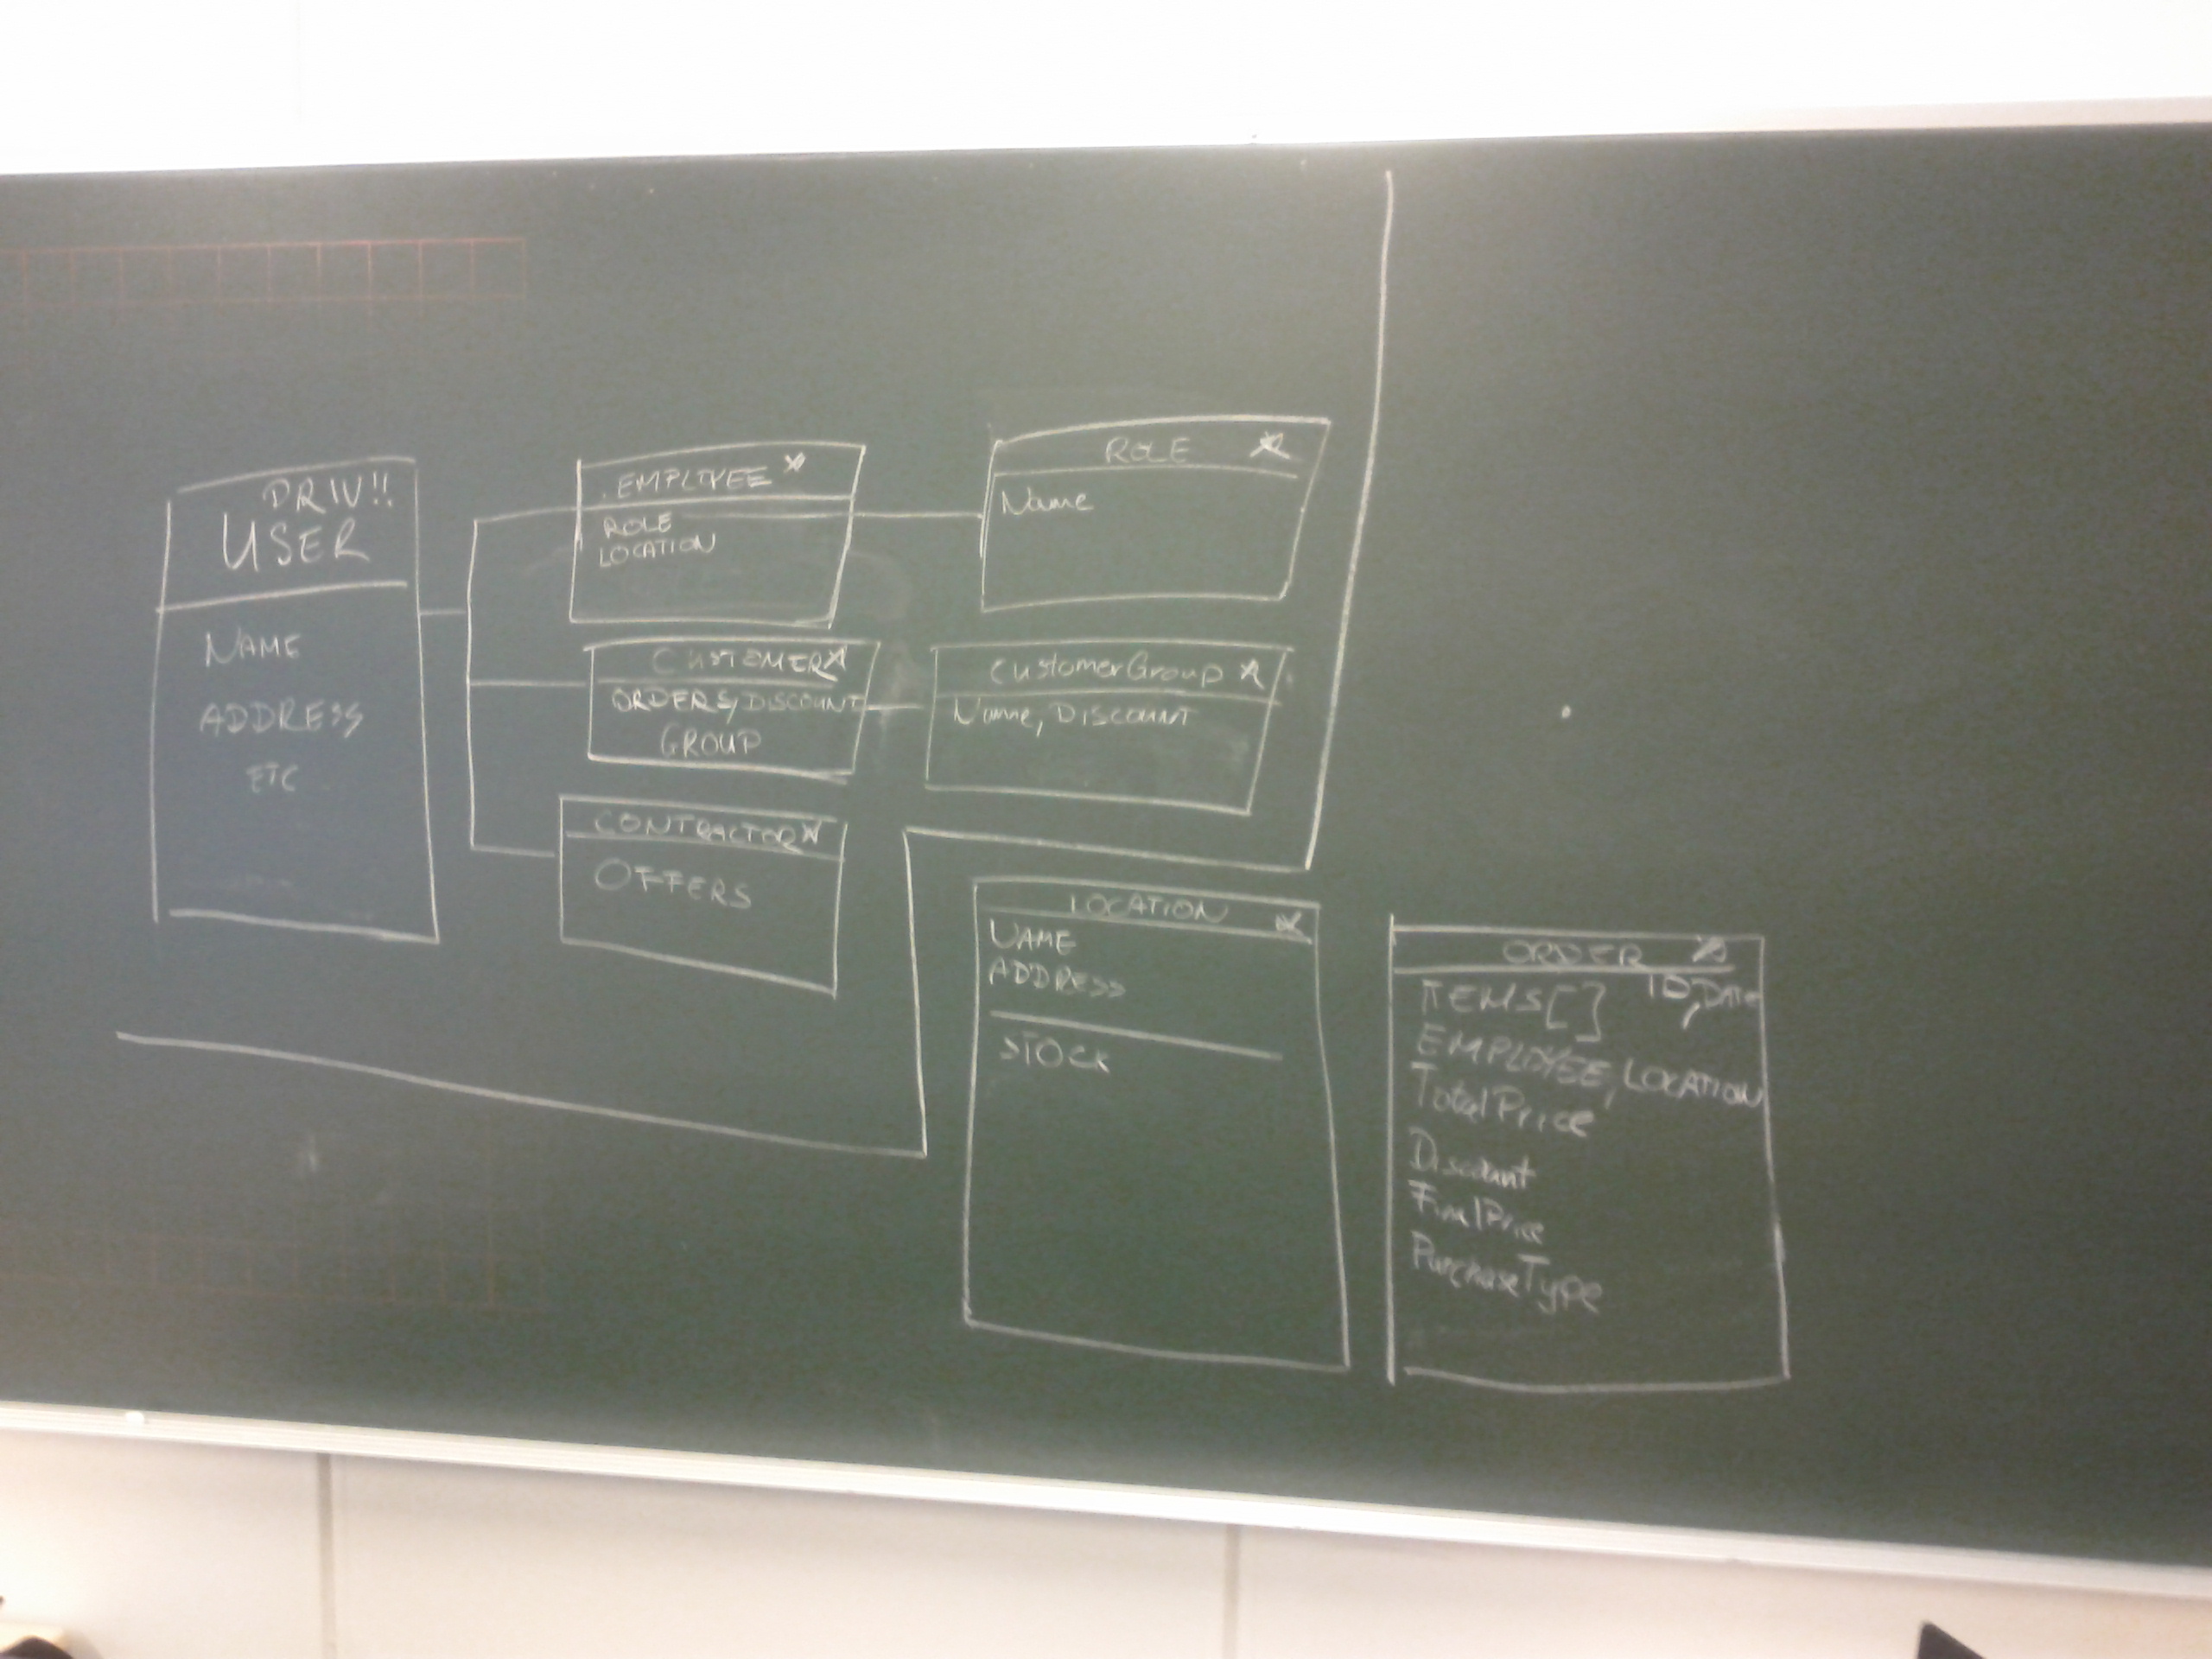 PRIV!!
USER
NAME
ADDRESS
ETC
EMPLOYEE
ROLE
LOCATION
ROLE
Name
CUSTOMER
ORDERS, DISCOUNT
GROUP
CustomerGroup
Name, DISCOUNT
CONTRACTOR
OFFERS
LOCATION
NAME
ADDRESS
STOCK
ORDER
ITEMS[] ID, DATE
EMPLOYEE, LOCATION
TotalPrice
Discount
FinalPrice
PurchaseType